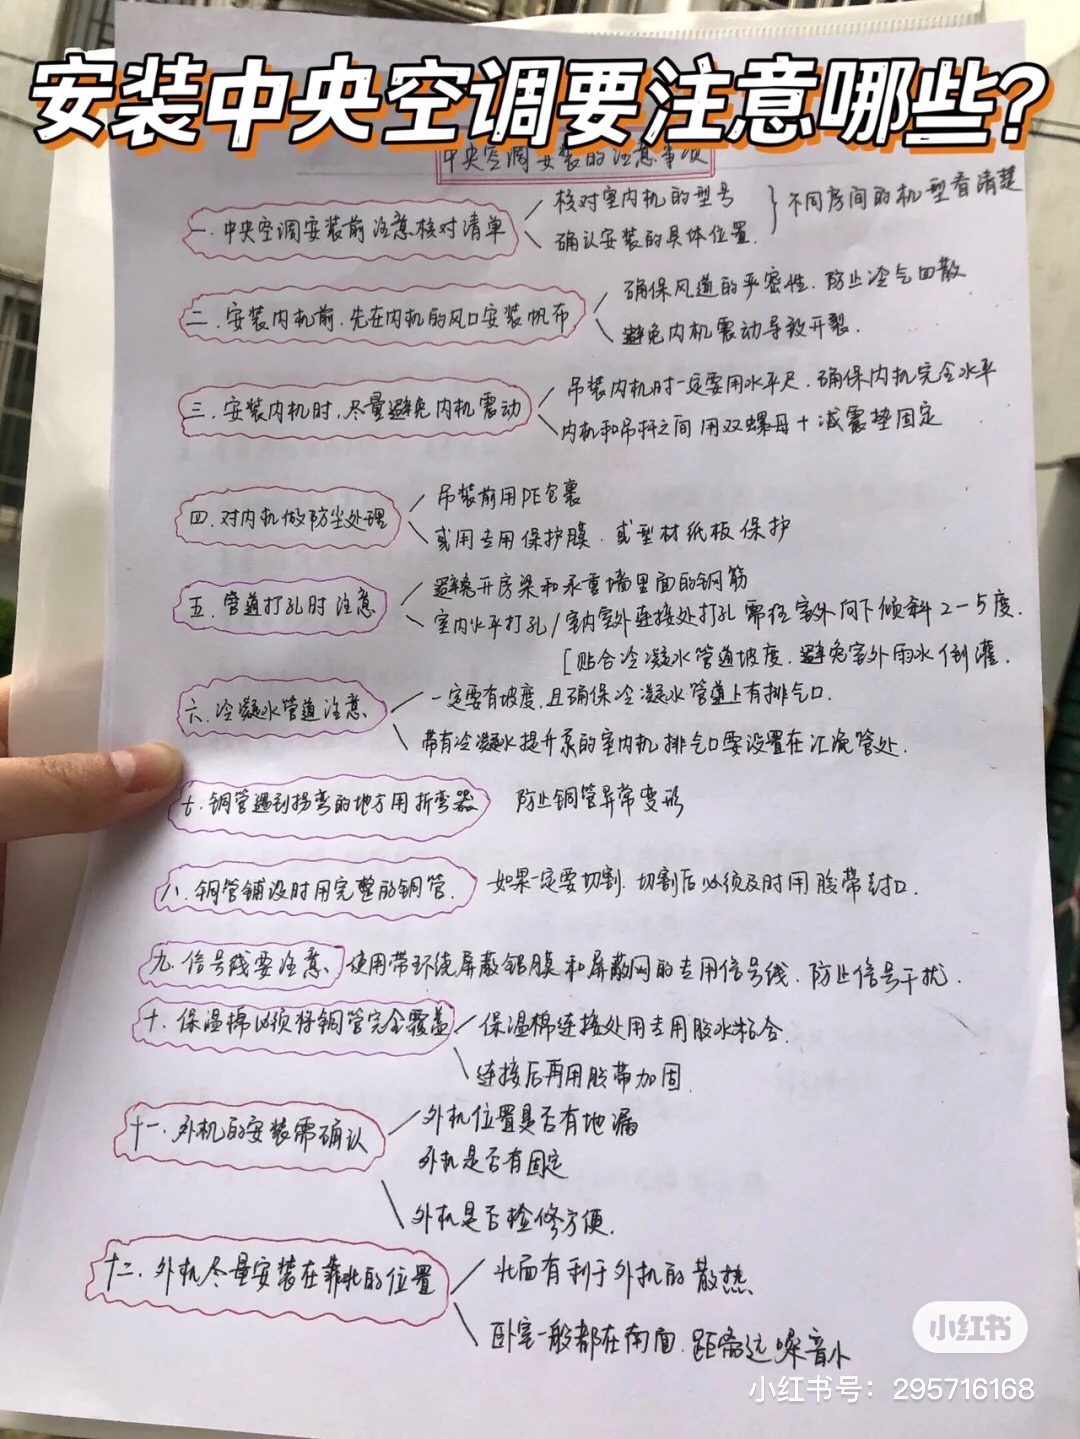 安装中央空调要注意哪些?
中央空调安装的注意事项
一.中央空调安装前注意核对清单
核对室内机的型号
确认安装的具体位置.
不同房间的机型看清楚
二.安装内机前.先在内机的风口安装帆布
确保风道的严密性.防止冷气回散
避免内机震动导致开裂.
三.安装内机时.尽量避免内机震动
吊装内机时一定要用水平尺.确保内机完全水平
内机和吊杆之间用双螺母+减震垫固定
四.对内机做防尘处理
吊装前用PE包裹
或用专用保护膜.或型材纸板保护
五.管道打孔时注意
避免开房梁和承重墙里面的钢筋
室内水平打孔/室内室外连接处打孔需往室外向下倾斜2-5度.
[贴合冷凝水管道坡度.避免室外雨水倒灌.
六.冷凝水管道注意
一定要有坡度.且确保冷凝水管道上有排气口.
带有冷凝水提升泵的室内机排气口要设置在汇流管处.
七.铜管遇到拐弯的地方用折弯器
防止铜管异常变形
八.铜管铺设时用完整的铜管.
如果一定要切割.切割后必须及时用胶带封口.
九.信号线要注意.
使用带环绕屏蔽铝膜和屏蔽网的专用信号线.防止信号干扰.
十.保温棉必须将铜管完全覆盖
保温棉连接处用专用胶水粘合.
连接后再用胶带加固.
十一.外机的安装需确认
外机位置是否有地漏
外机是否有固定
外机是否检修方便.
十二.外机尽量安装在靠北的位置
北面有利于外机的散热
卧室一般都在南面.距离远噪音小
小红书
小红书号：295716168